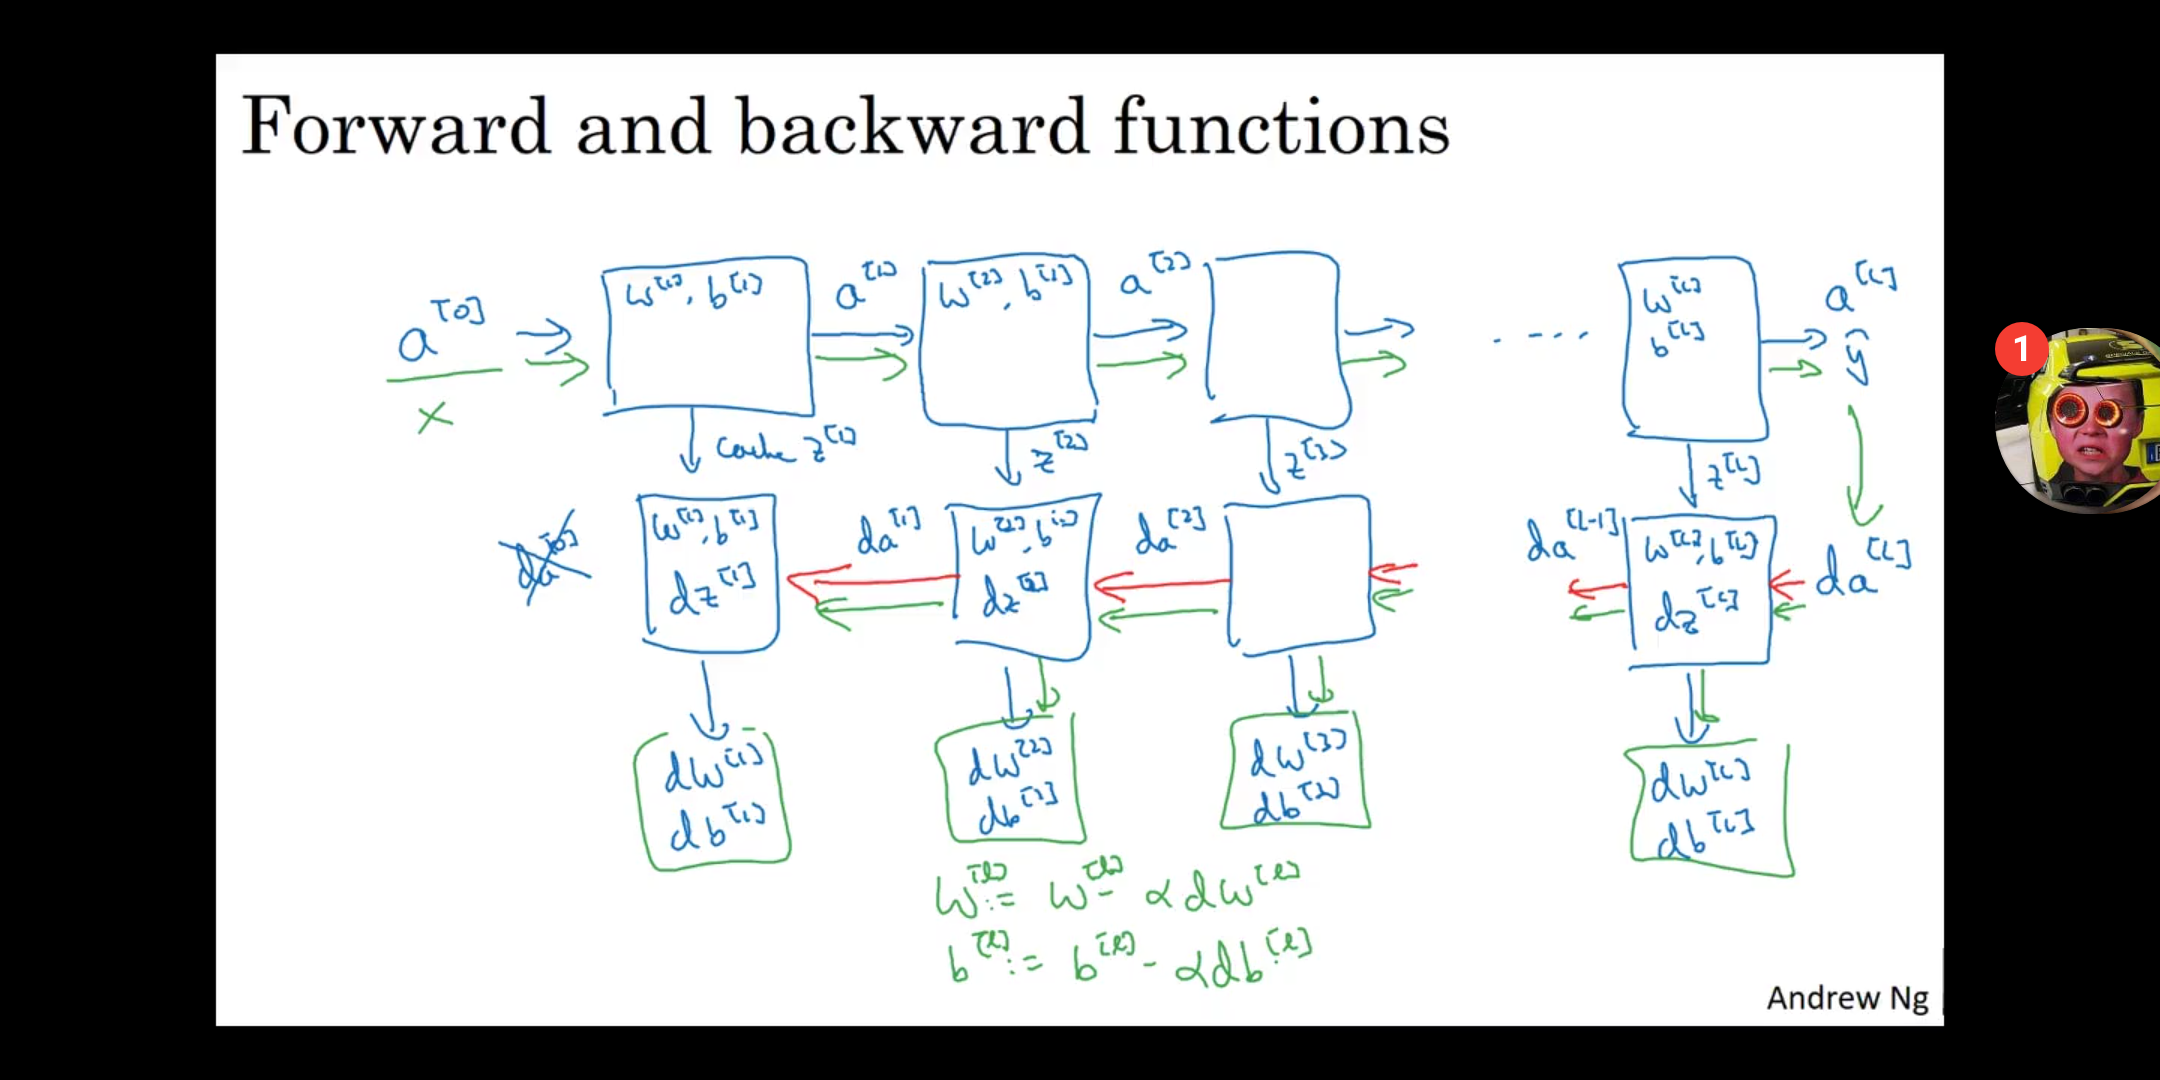 Forward and backward functions
a[0] w[1], b[1] a[1] w[2], b[2] a[2] .... w[L] a[L]
b[L] ŷ
x
cache z[1] z[2] z[3] z[L]
da[0] w[1], b[1] da[1] w[2], b[2] da[2] da[L-1] w[L], b[L] da[L]
dz[1] dz[2] dz[L]
dw[1] dw[2] dw[3] dw[L]
db[1] db[2] db[3] db[L]
w[l] := w[l] - αdw[l]
b[l] := b[l] - αdb[l]
Andrew Ng
1